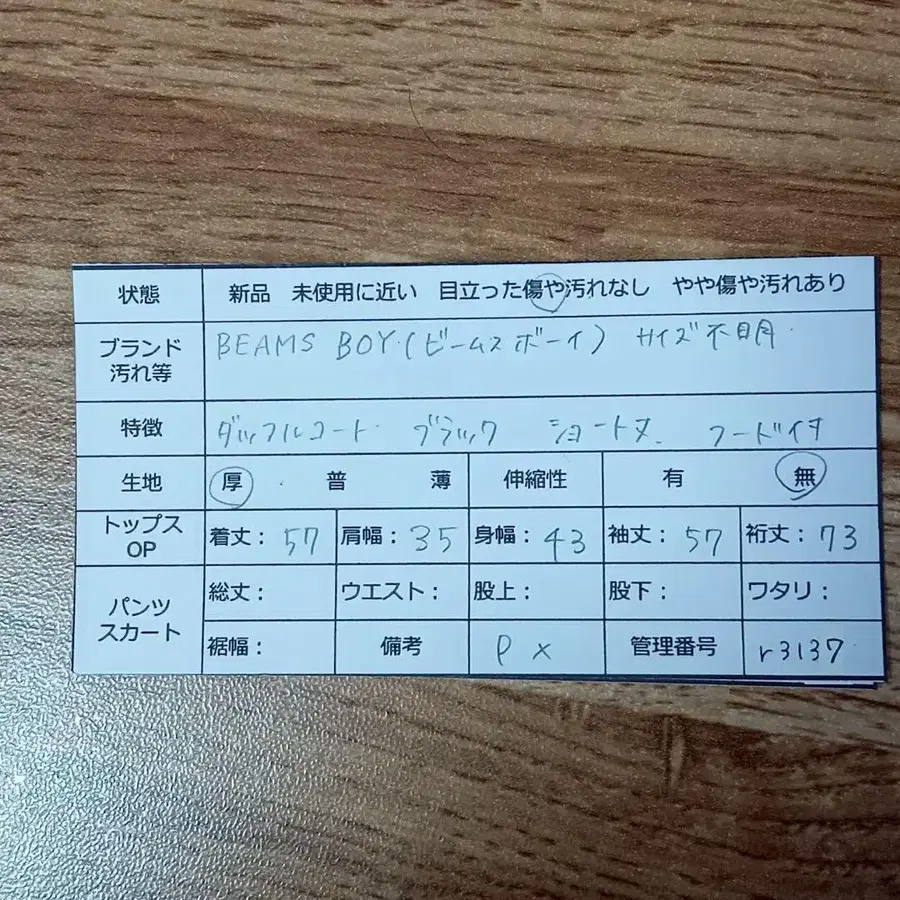 状態 新品 未使用に近い 目立った傷や汚れなし やや傷や汚れあり
ブランド
汚れ等 BEAMS BOY(ビームスボーイ) サイズ不明
特徴 ダッフルコート ブラック ショート丈 フード付
生地 厚 普 薄 伸縮性 有 無
トップス
OP 着丈: 57 肩幅: 35 身幅: 43 袖丈: 57 裄丈: 73
パンツ
スカート 総丈: ウエスト: 股上: 股下: ワタリ:
裾幅: 備考 P x 管理番号 r3137